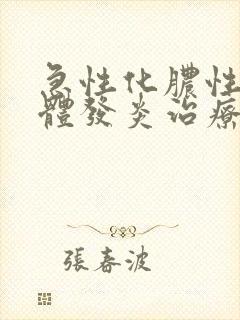 急性化膿性
體發炎治療
張春波